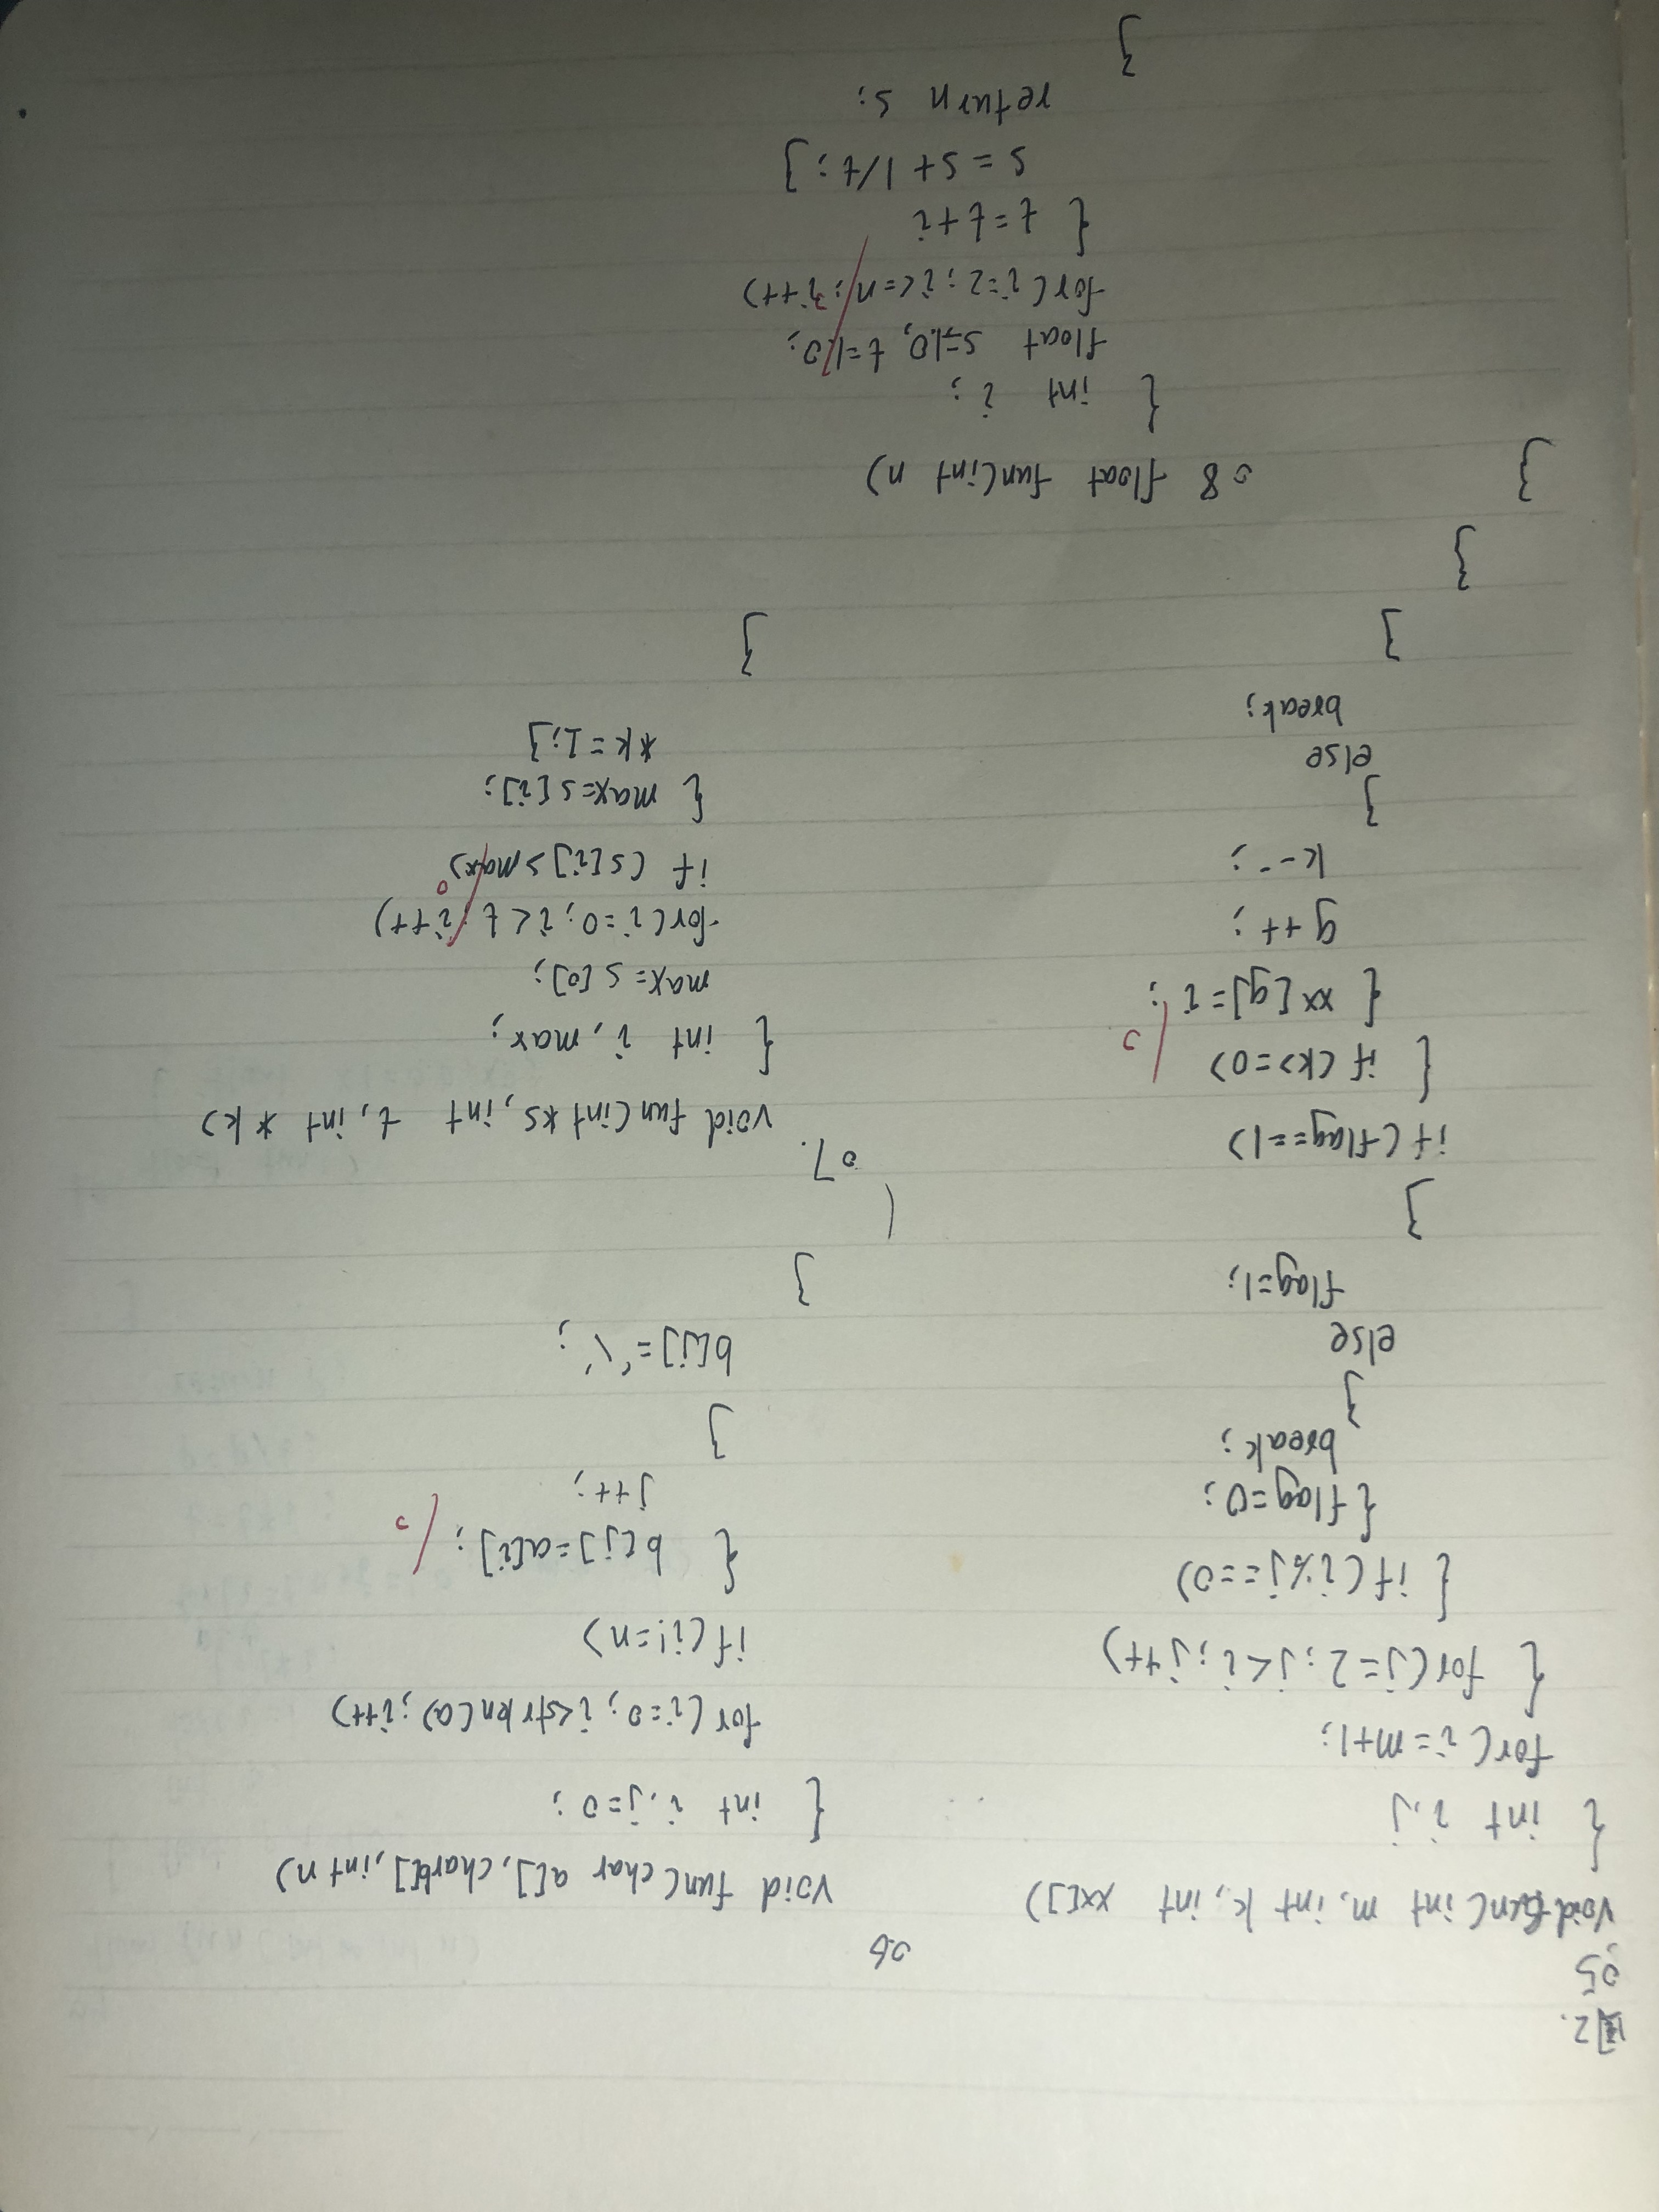 12.
05
void fun(int m, int k, int xx[])
{ int i,j
for(i=m+1;
{ for(j=2;j<i;j++)
{ if(i%j==0)
{ flag=0;
break;
}
else
flag=1;
}
if(flag==1)
{ if(k>=0)
{ xx[g]=i;
g++;
k--;
}
else
break;
}
}
}
06
void fun(char a[],charb[],int n)
{ int i,j=0;
for(i=0;i<strlen(a);i++)
if(i!=n)
{ b[j]=a[i];
j++;
}
b[j]='\';
}
07.
void fun(int *s,int t,int *k)
{ int i,max;
max=s[0];
for(i=0;i<t;i++)
if (s[i]>max)
{ max=s[i];
*k=1;}
}
08 float fun(int n)
{ int i;
float s=1.0, t=1.0;
for(i=2;i<=n;i++)
{ t=t+i
s=s+1/t;}
return s;
}